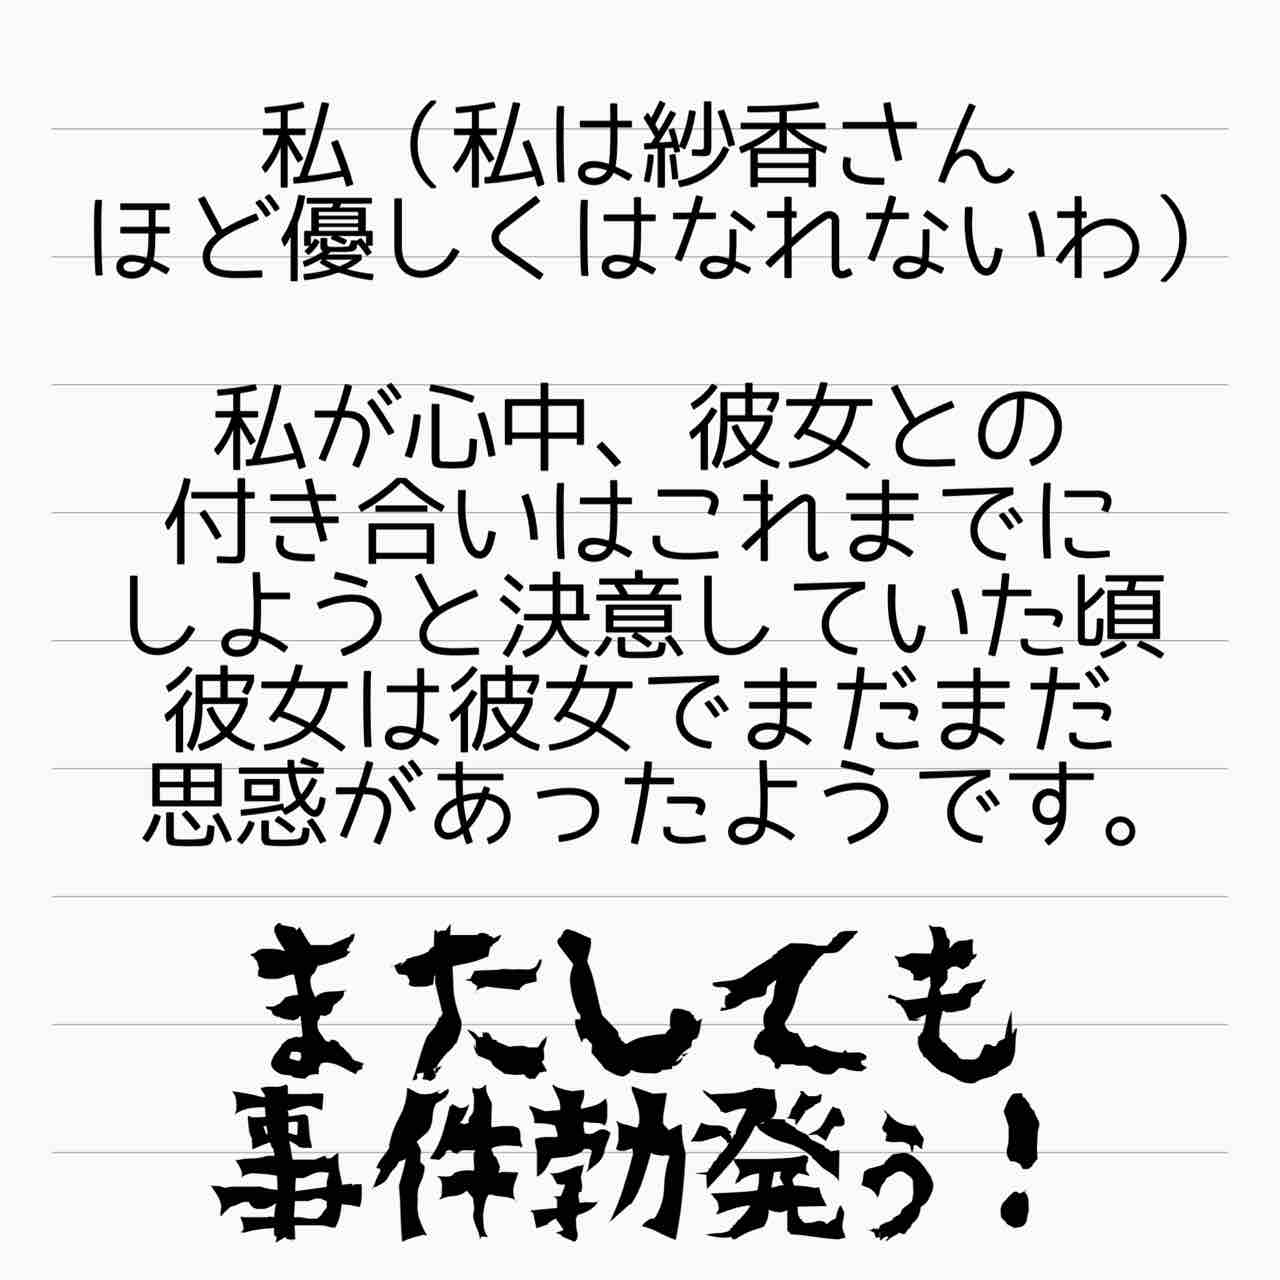 私（私は紗香さん
ほど優しくはなれないわ）
私が心中、彼女との
付き合いはこれまでに
しようと決意していた頃
彼女は彼女でまだまだ
思惑があったようです。
またしても
事件勃発ぅ！